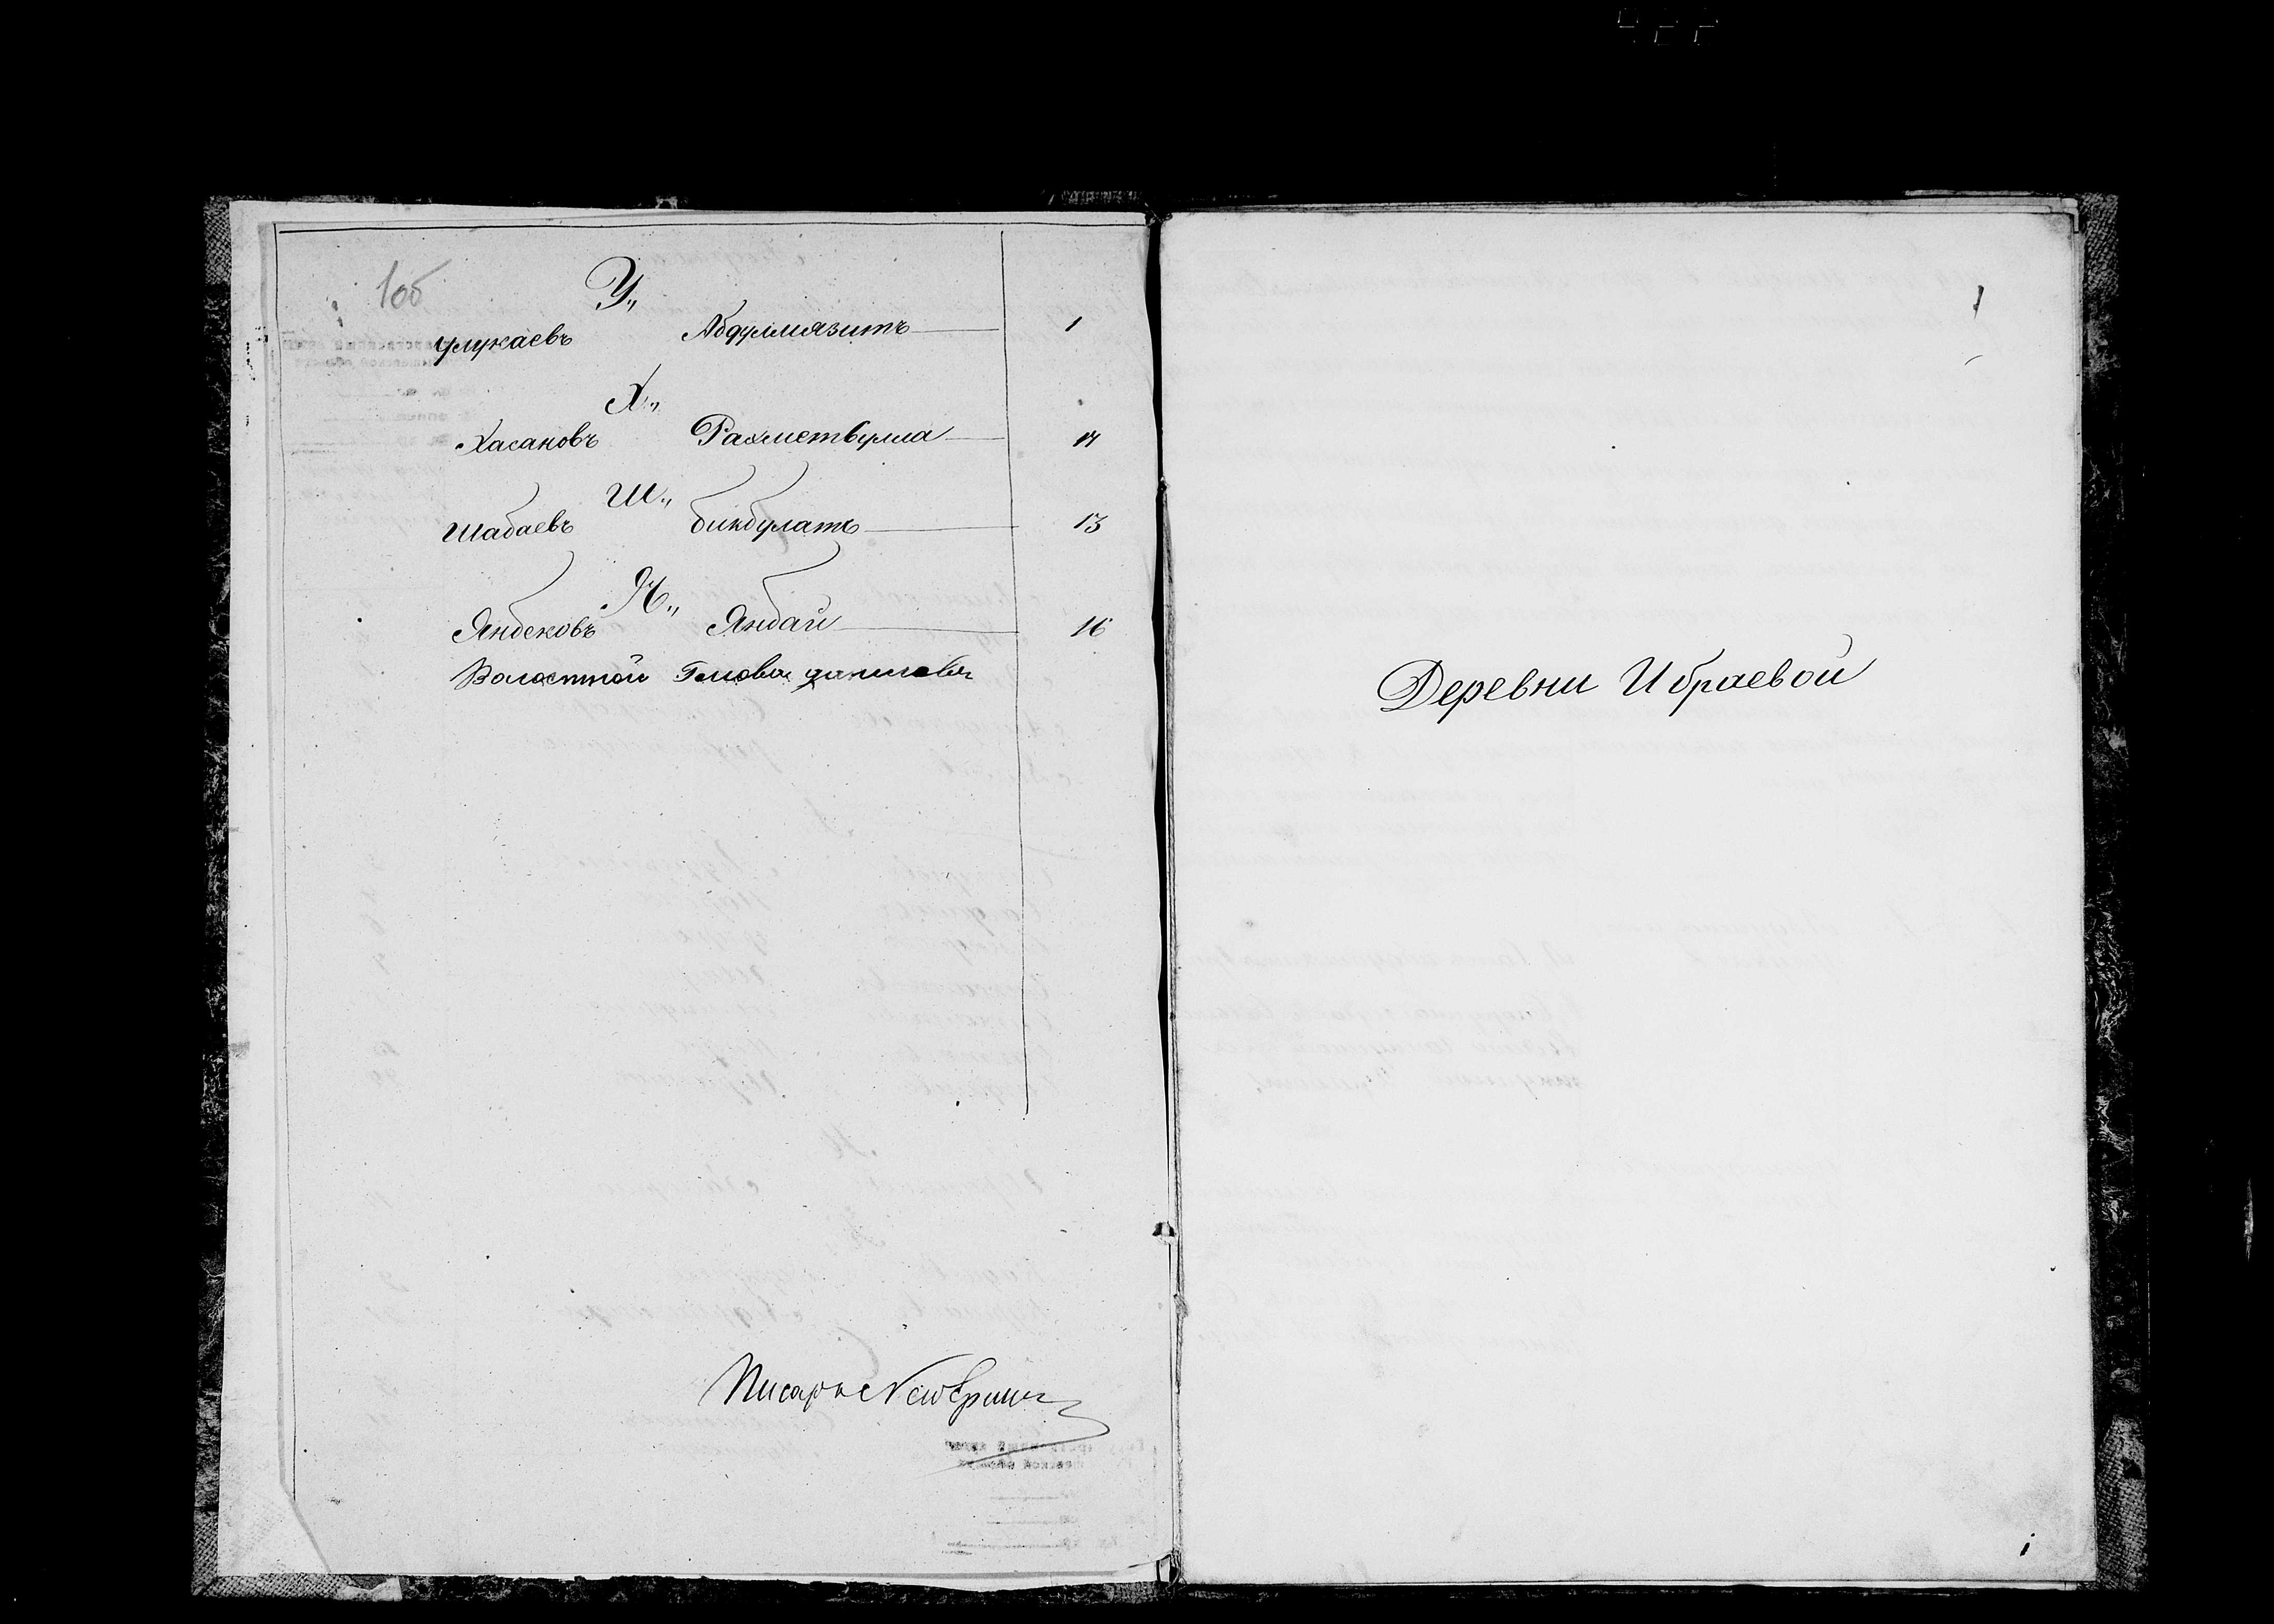 1об
У„
Улукаевъ Абдулмязитъ 1
Х„
Хасановъ Рахметвулла 14
Ш„
Шабаевъ бикбулатъ 13
Я„
Янбековъ Янбай 16
Волостной Голова
Писарь
1
Деревни Ибраевой
1